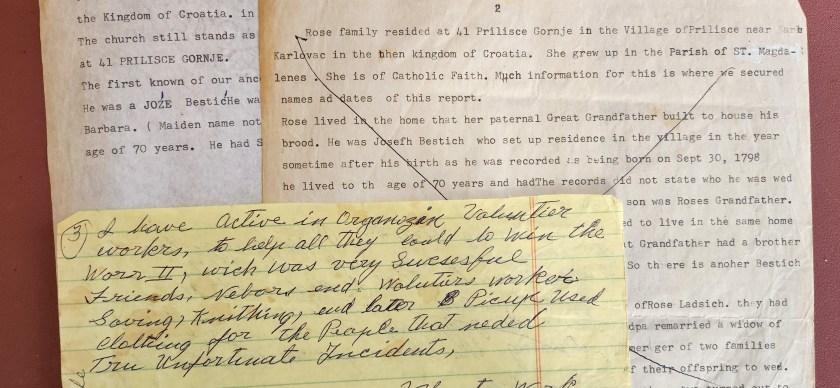 the Kingdom of Croatia. in
The church still stands as
at 41 PRILISCE GORNJE.
The first known of our anc
He was a JOŽE BestićHe wa
Barbara. ( Maiden name not
age of 70 years. He had S
2
Rose family resided at 41 Prilisce Gornje in the Village ofPrilisce near
Karlovac in the then kingdom of Croatia. She grew up in the Parish of ST. Magda-
lenes . She is of Catholic Faith. Much information for this is where we secured
names ad dates of this report.
Rose lived in the home that her paternal Great Grandfather built to house his
brood. He was Josefh Bestich who set up residence in the village in the year
sometime after his birth as he was recorded as being born on Sept 30, 1798
he lived to th age of 70 years and hadThe records did not state who he was wed
son was Roses Grandfather.
ed to live in the same home
t Grandfather had a brother
So th ere is anoher Bestich
ofRose Ladsich. they had
dpa remarried a widow of
mer ger of two families
f their offspring to wed.
3 I have active in Organozin Voluntier
workers, to help all they could to win the
Worr II, wick was very Sucsesful
Friends, Nebors end. Wolutiers worket
Soving, Knitthing, end later Picup Used
clothing for the People that neded
Tru Unfortunate Incidents,